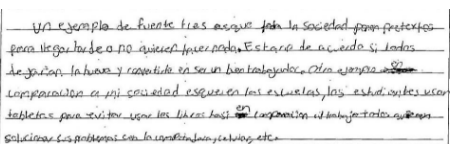 Un ejemplo de fuente tres es que toda la sociedad ponen pretextos
para llegar tarde o no quieren hacer nada. Estaría de acuerdo si todos
dejarían la hueva y convertido en ser un bien trabajador. Otro ejemplo
comparación a mi sociedad es que en las escuelas, los estudiantes usar
tabletas para evitar usar los libros hasi en comparación al trabajo todos quieren
solucionar sus problemas con la computadora, celular, etc.